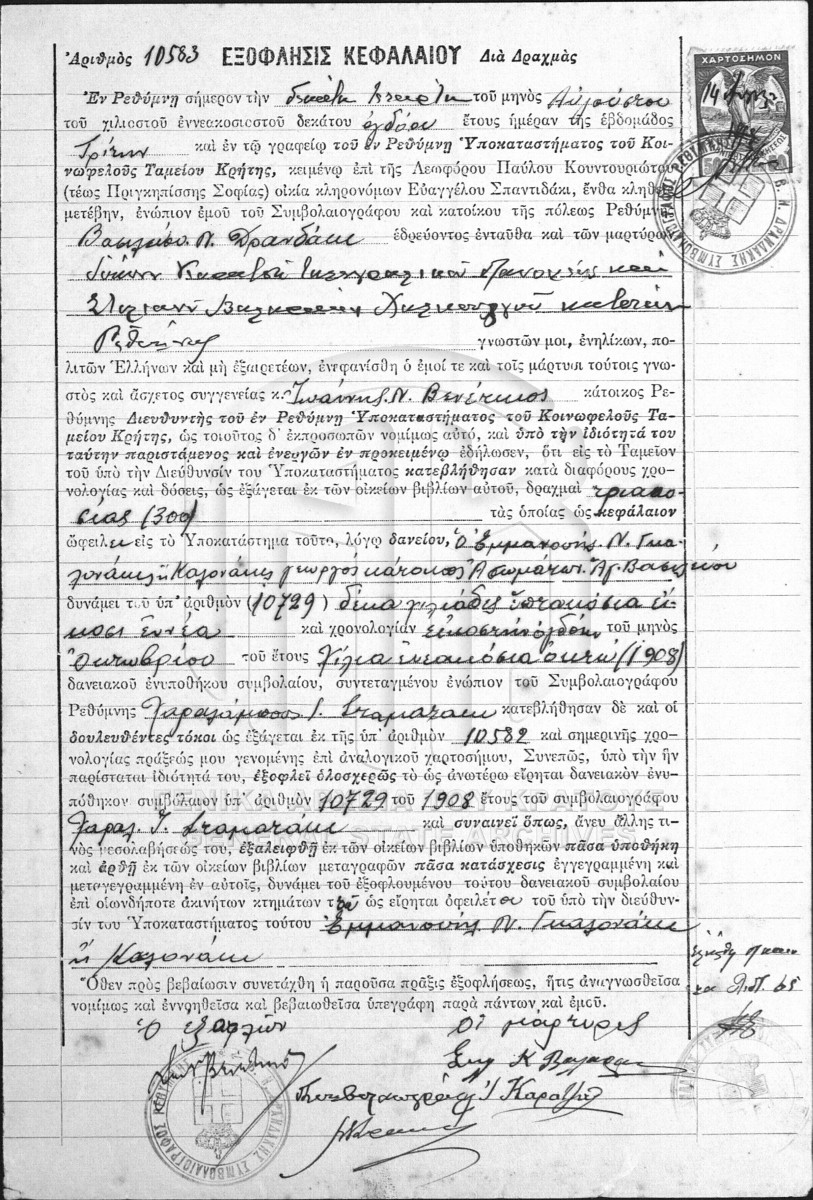 Ἀριθμὸς 10583 ΕΞΟΦΛΗΣΙΣ ΚΕΦΑΛΑΙΟΥ Διὰ Δραχμὰς
ΧΑΡΤΟΣΗΜΟΝ
Ἐν Ρεθύμνῃ σήμερον τὴν δεκάτη τετάρτη τοῦ μηνὸς Αὐγούστου
τοῦ χιλιοστοῦ ἐννεακοσιοστοῦ δεκάτου ὀγδόου ἔτους ἡμέραν τῆς ἑβδομάδος
Τρίτην καὶ ἐν τῷ γραφείῳ τοῦ ἐν Ρεθύμνῃ Ὑποκαταστήματος τοῦ Κοι-
νωφελοῦς Ταμείου Κρήτης, κειμένῳ ἐπὶ τῆς Λεωφόρου Παύλου Κουντουριώτου
(τέως Πριγκηπίσσης Σοφίας) οἰκίᾳ κληρονόμων Εὐαγγέλου Σπαντιδάκι, ἔνθα κληθεὶς
μετέβην, ἐνώπιον ἐμοῦ τοῦ Συμβολαιογράφου καὶ κατοίκου τῆς πόλεως Ρεθύμνης
Βασιλείου Ν. Δρανδάκι ἑδρεύοντος ἐνταῦθα καὶ τῶν μαρτύρων
καὶ
Ρεθύμνης γνωστῶν μοι, ἐνηλίκων, πο-
λιτῶν Ἑλλήνων καὶ μὴ ἐξαιρετέων, ἐνεφανίσθη ὁ ἐμοί τε καὶ τοῖς μάρτυσι τούτοις γνω-
στὸς καὶ ἄσχετος συγγενείας κ. Ἰωάννης Ν. Βενέτικος κάτοικος Ρε-
θύμνης Διευθυντὴς τοῦ ἐν Ρεθύμνῃ Ὑποκαταστήματος τοῦ Κοινωφελοῦς Τα-
μείου Κρήτης, ὡς τοιοῦτος δ' ἐκπροσωπῶν νομίμως αὐτό, καὶ ὑπὸ τὴν ἰδιότητά του
ταύτην παριστάμενος καὶ ἐνεργῶν ἐν προκειμένῳ ἐδήλωσεν, ὅτι εἰς τὸ Ταμεῖον
τοῦ ὑπὸ τὴν Διεύθυνσίν του Ὑποκαταστήματος κατεβλήθησαν κατὰ διαφόρους χρο-
νολογίας καὶ δόσεις, ὡς ἐξάγεται ἐκ τῶν οἰκείων βιβλίων αὐτοῦ, δραχμαὶ τριακο-
σίας (300) τὰς ὁποίας ὡς κεφάλαιον
ὤφειλε εἰς τὸ Ὑποκατάστημα τοῦτο, λόγῳ δανείου, ὁ Ἐμμανουὴλ Ν. Γκα-
λονάκις ἢ Καλονάκις γεωργὸς κάτοικος Ἀσωμάτων Ἁγ. Βασιλείου
δυνάμει τοῦ ὑπ' ἀριθμὸν (10729) δέκα χιλιάδες ἑπτακόσια εἴ-
κοσι ἐννέα καὶ χρονολογίαν εἰκοστὴν ὀγδόην τοῦ μηνὸς
Ὀκτωβρίου τοῦ ἔτους χίλια ἐννεακόσια ὀκτὼ (1908)
δανειακοῦ ἐνυποθήκου συμβολαίου, συντεταγμένου ἐνώπιον τοῦ Συμβολαιογράφου
Ρεθύμνης Χαραλάμπους Ι. Σταματάκι κατεβλήθησαν δὲ καὶ οἱ
δουλευθέντες τόκοι ὡς ἐξάγεται ἐκ τῆς ὑπ' ἀριθμὸν 10582 καὶ σημερινῆς χρο-
νολογίας πράξεώς μου γενομένης ἐπὶ ἀναλογικοῦ χαρτοσήμου, Συνεπῶς, ὑπὸ τὴν ἣν
παρίσταται ἰδιότητά του, ἐξοφλεῖ ὁλοσχερῶς τὸ ὡς ἀνωτέρω εἴρηται δανειακὸν ἐνυ-
πόθηκον συμβόλαιον ὑπ' ἀριθμὸν 10729 τοῦ 1908 ἔτους τοῦ συμβολαιογράφου
ΓΕΝΙΚΑ ΑΡΧΕΙΑ ΤΟΥ ΚΡΑΤΟΥΣ
Χαραλ. Ι. Σταματάκι καὶ συναινεῖ ὅπως, ἄνευ ἄλλης τι-
GENERAL STATE ARCHIVES
νὸς μεσολαβήσεώς του, ἐξαλειφθῇ ἐκ τῶν οἰκείων βιβλίων ὑποθηκῶν πᾶσα ὑποθήκη
καὶ ἀρθῇ ἐκ τῶν οἰκείων βιβλίων μεταγραφῶν πᾶσα κατάσχεσις ἐγγεγραμμένη καὶ
μεταγεγραμμένη ἐν αὐτοῖς, δυνάμει τοῦ ἐξοφλουμένου τούτου δανειακοῦ συμβολαίου
ἐπὶ οἱωνδήποτε ἀκινήτων κτημάτων τοῦ ὡς εἴρηται ὀφειλέτου τοῦ ὑπὸ τὴν διεύθυν-
σίν του Ὑποκαταστήματος τούτου Ἐμμανουὴλ Ν. Γκαλονάκι
ἢ Καλονάκι
Ὅθεν πρὸς βεβαίωσιν συνετάχθη ἡ παροῦσα πρᾶξις ἐξοφλήσεως, ἥτις ἀναγνωσθεῖσα
νομίμως καὶ ἐννοηθεῖσα καὶ βεβαιωθεῖσα ὑπεγράφη παρὰ πάντων καὶ ἐμοῦ.
Ὁ ἐξοφλῶν Οἱ μάρτυρες